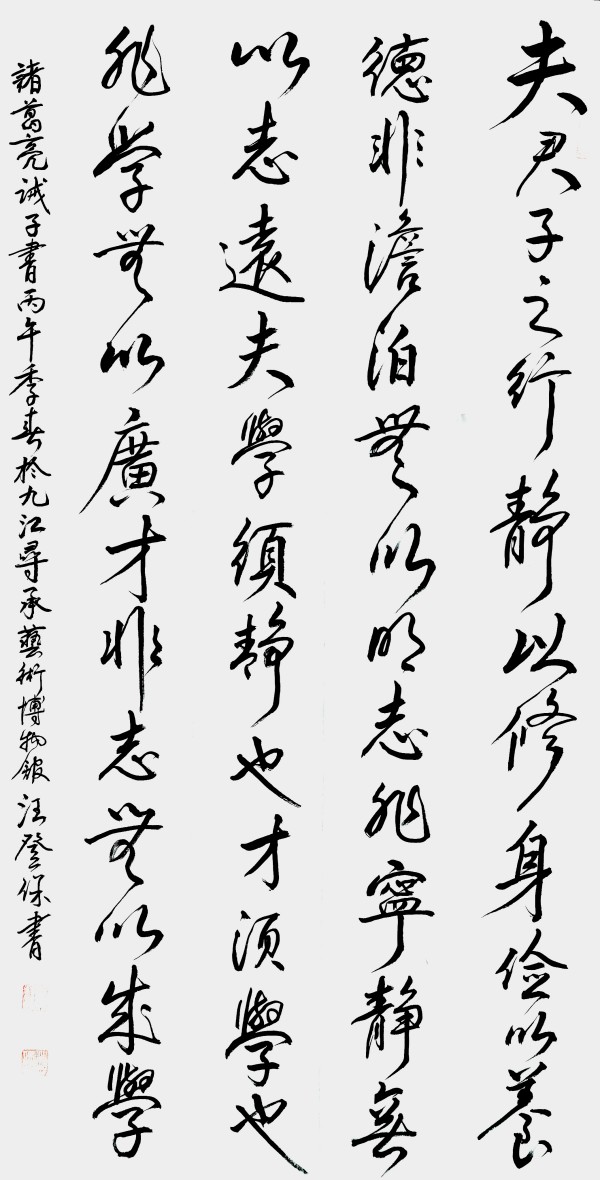 夫君子之行静以修身俭以養
德非澹泊無以明志非寧静無
以志遠夫學須静也才須學也
非學無以廣才非志無以成學
諸葛亮诫子書丙午季春於九江尋承藝術博物館汪登保書